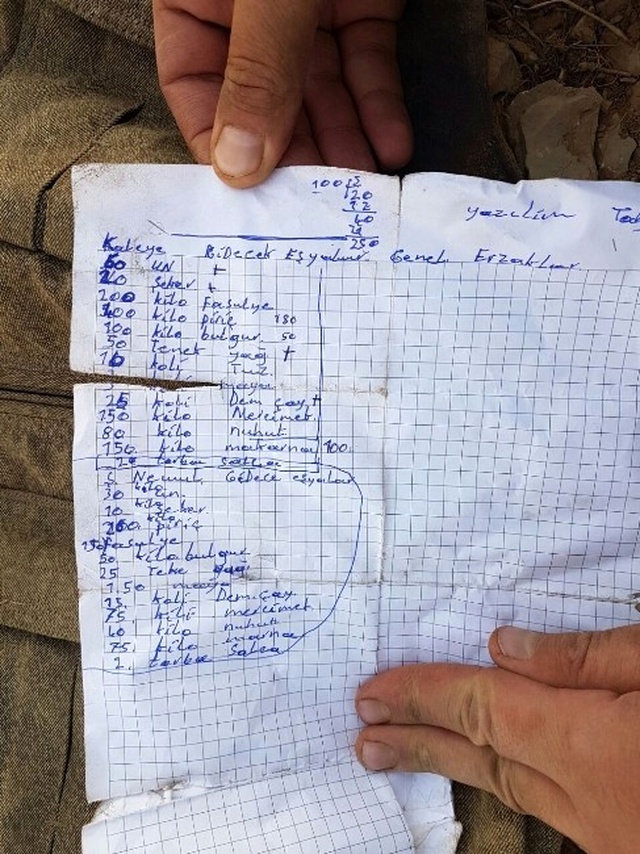 100 5
20
12
60
250
yazılım
Kaleye Gidecek Eşyalar Genel Erzaklar
60 UN +
20 Şeker +
200 kilo Fasulye
400 kilo piriç 150
100 kilo bulgur 50
50 Teneke yağ +
10 koli Tuz
maya
25 koli Dem çay +
150 kilo Mercimet
80 kilo nuhut
150 kilo makarna 100
torba salca
Gidece eşyalar
30 kilo un
10 kilo şeker
kilo piriç
150 fasulye
50 kilo bulgur
25 Teke yağ
1.50 maya
15 koli Dem çay
75 kilo mercimet
40 kilo nuhut
75 kilo marna
2. torba Salca